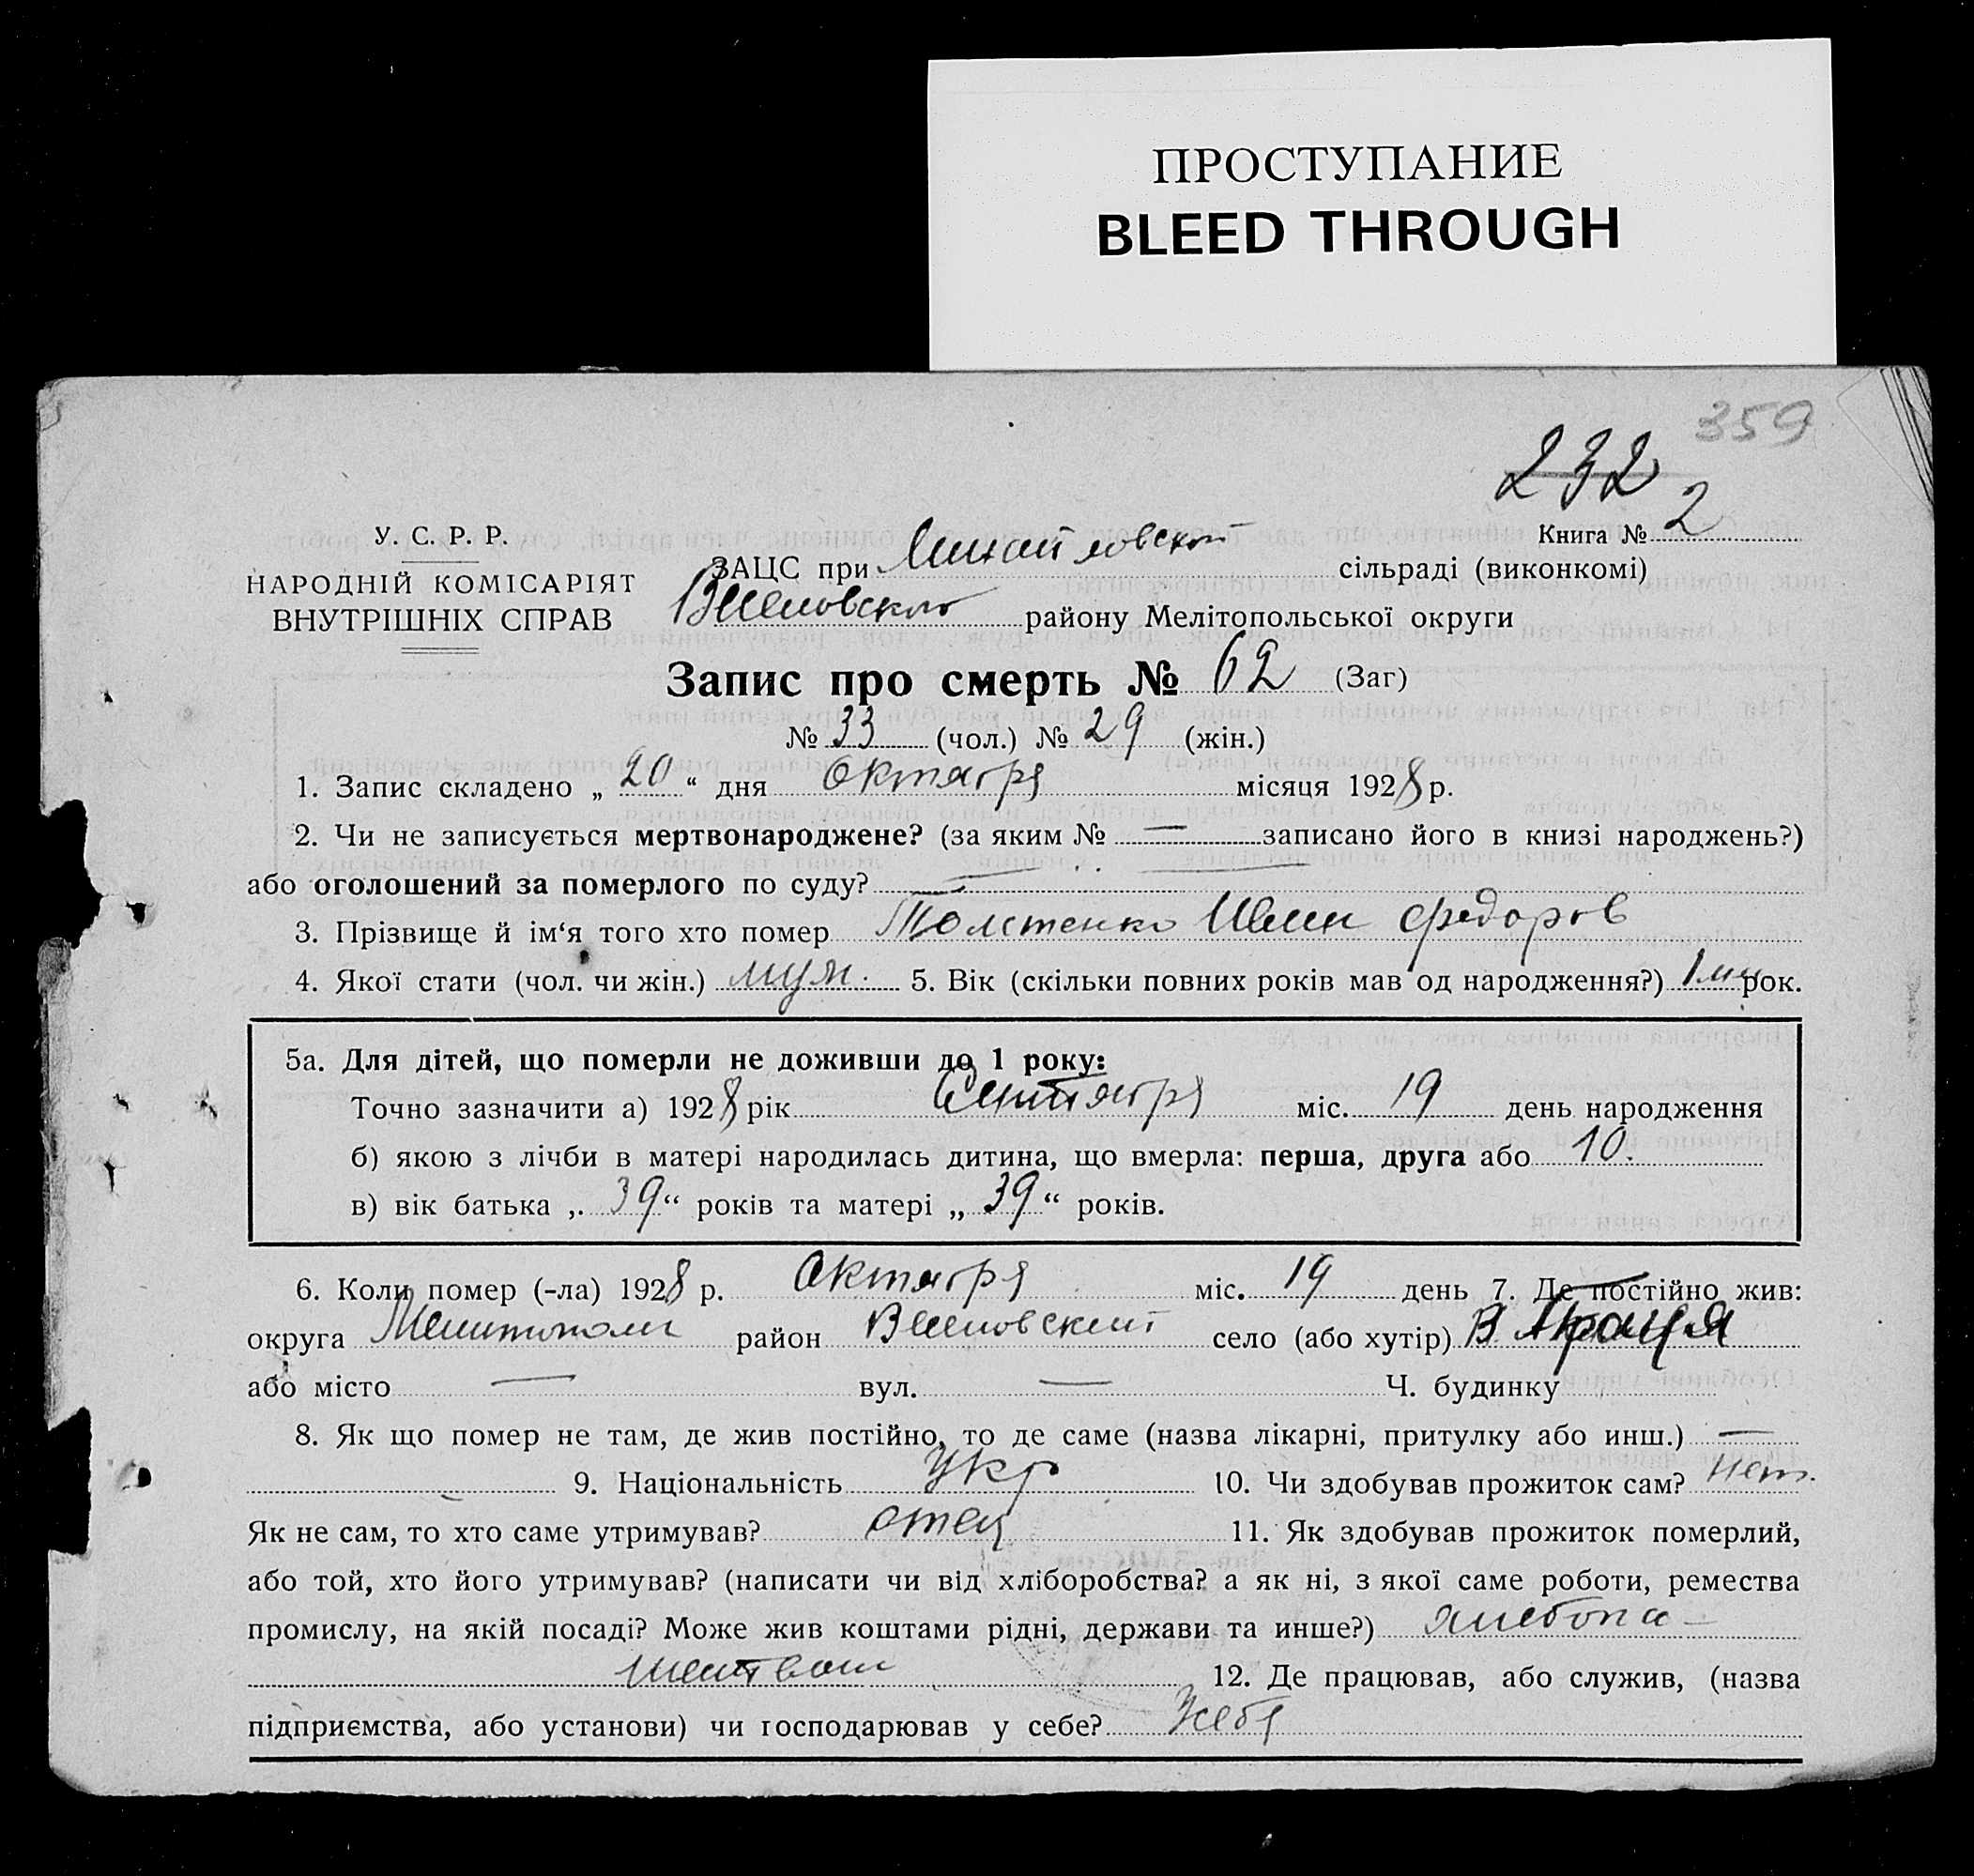 ПРОСТУПАНИЕ
BLEED THROUGH
359
232
У. С. Р. Р.
НАРОДНІЙ КОМІСАРІЯТ
ВНУТРІШНІХ СПРАВ
Книга № 2
ЗАЦС при Михайловской сільраді (виконкомі)
району Мелітопольської округи
Запис про смерть № 62 (Заг)
№ 33 (чол.) № 29 (жін.)
1. Запис складено „ 20 “ дня Октября місяця 1928 р.
2. Чи не записується мертвонароджене? (за яким № — записано його в книзі народжень?)
або оголошений за померлого по суду? —
3. Прізвище й ім‘я того хто помер Толстенко Федоров
4. Якої стати (чол. чи жін.) муж. 5. Вік (скільки повних років мав од народження?) 1 рок.
5а. Для дітей, що померли не доживши до 1 року:
Точно зазначити а) 1928 рік Сентября міс. 19 день народження
б) якою з лічби в матері народилась дитина, що вмерла: перша, друга або 10.
в) вік батька „ 39 “ років та матері „ 39 “ років.
6. Коли помер (-ла) 1928 р. Октября міс. 19 день 7. Де постійно жив:
округа Мелитополь район село (або хутір) В
або місто — вул. — Ч. будинку
8. Як що помер не там, де жив постійно, то де саме (назва лікарні, притулку або инш.) —
9. Національність Укр 10. Чи здобував прожиток сам? Нет.
Як не сам, то хто саме утримував? отец 11. Як здобував прожиток померлий,
або той, хто його утримував? (написати чи від хліборобства? а як ні, з якої саме роботи, ремества
промислу, на якій посаді? Може жив коштами рідні, держави та инше?) хлебопа-
шеством 12. Де працював, або служив, (назва
підприємства, або установи) чи господарював у себе? У себя